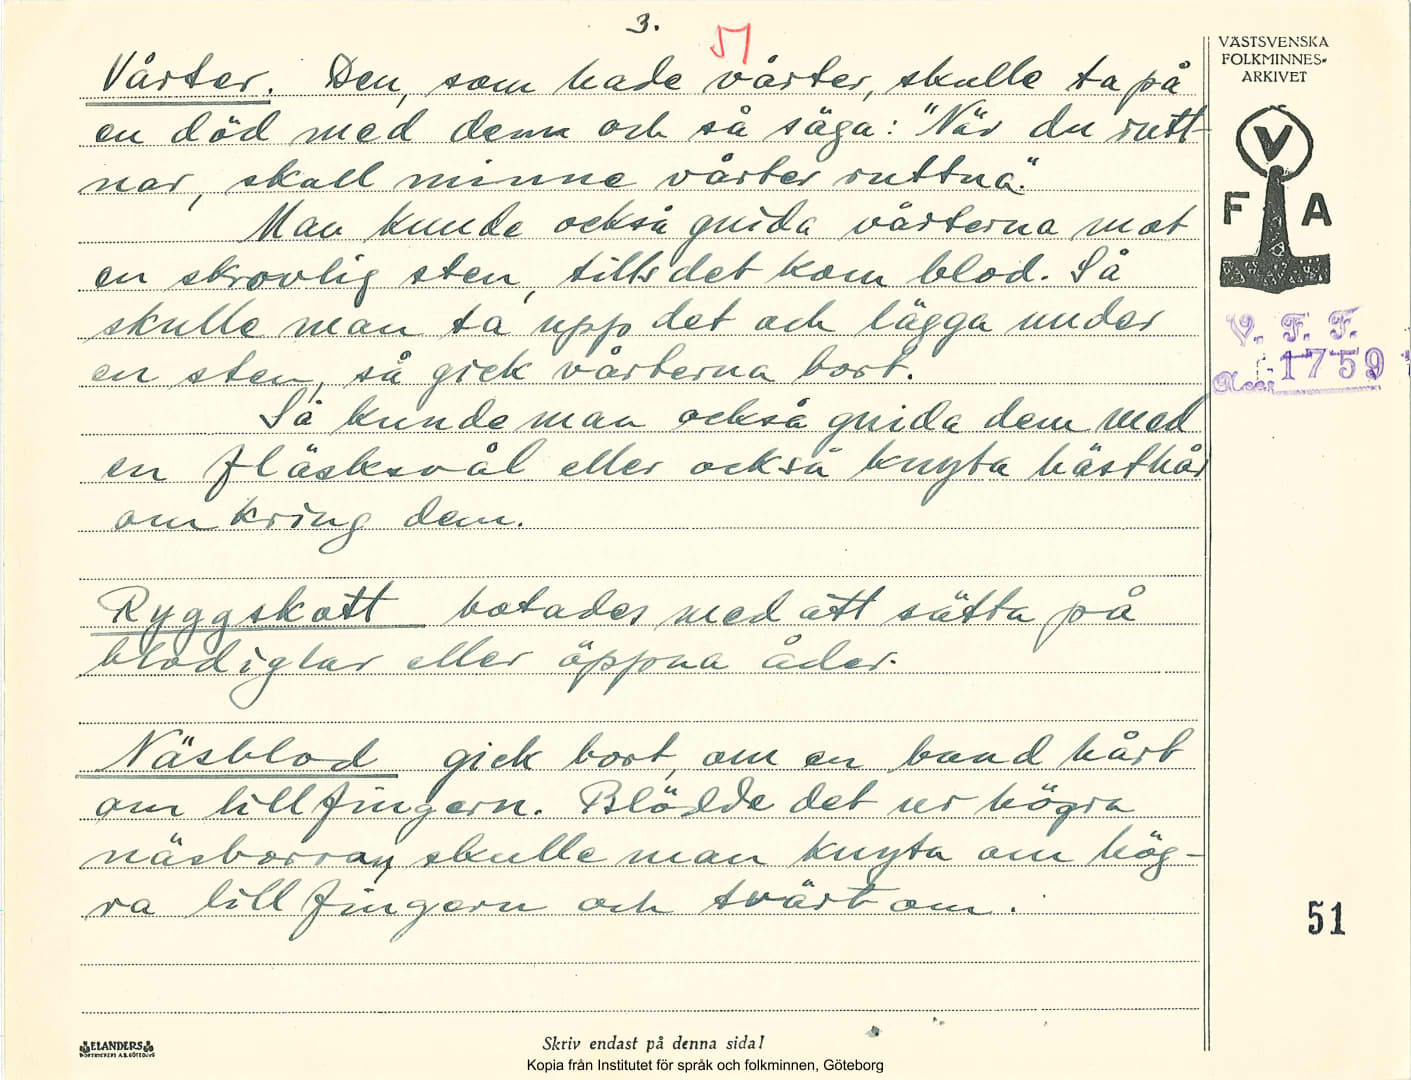 3.
51
VÄSTSVENSKA
FOLKMINNES-
ARKIVET
Vårter. Den, som hade vårter, skulle ta på
en död med dem och så säga: "När du rutt-
nar, skall minne vårter ruttna."
Man kunde också gnida vårterna mot
en skrovlig sten, tills det kom blod. Så
skulle man ta upp det och lägga under
en sten, så gick vårterna bort.
Så kunde man också gnida dem med
en fläsksvål eller också knyta hästhår
omkring dem.
Ryggskott botades med att sätta på
blodiglar eller öppna åder.
Näsblod gick bort, om en band hårt
om lillfingern. Blödde det ur högra
näsborran, skulle man knyta om hög-
ra lillfingern och tvärt om.
V
F A
V. F. F.
Acc. 1759
51
ELANDERS
BOKTRYCKERI A.B. GÖTEBORG
Skriv endast på denna sida!
Kopia från Institutet för språk och folkminnen, Göteborg